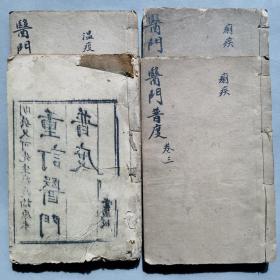 醫門
温疫
醫門
痢疾
普度
重訂醫門
醫門普度
卷三
痢疾